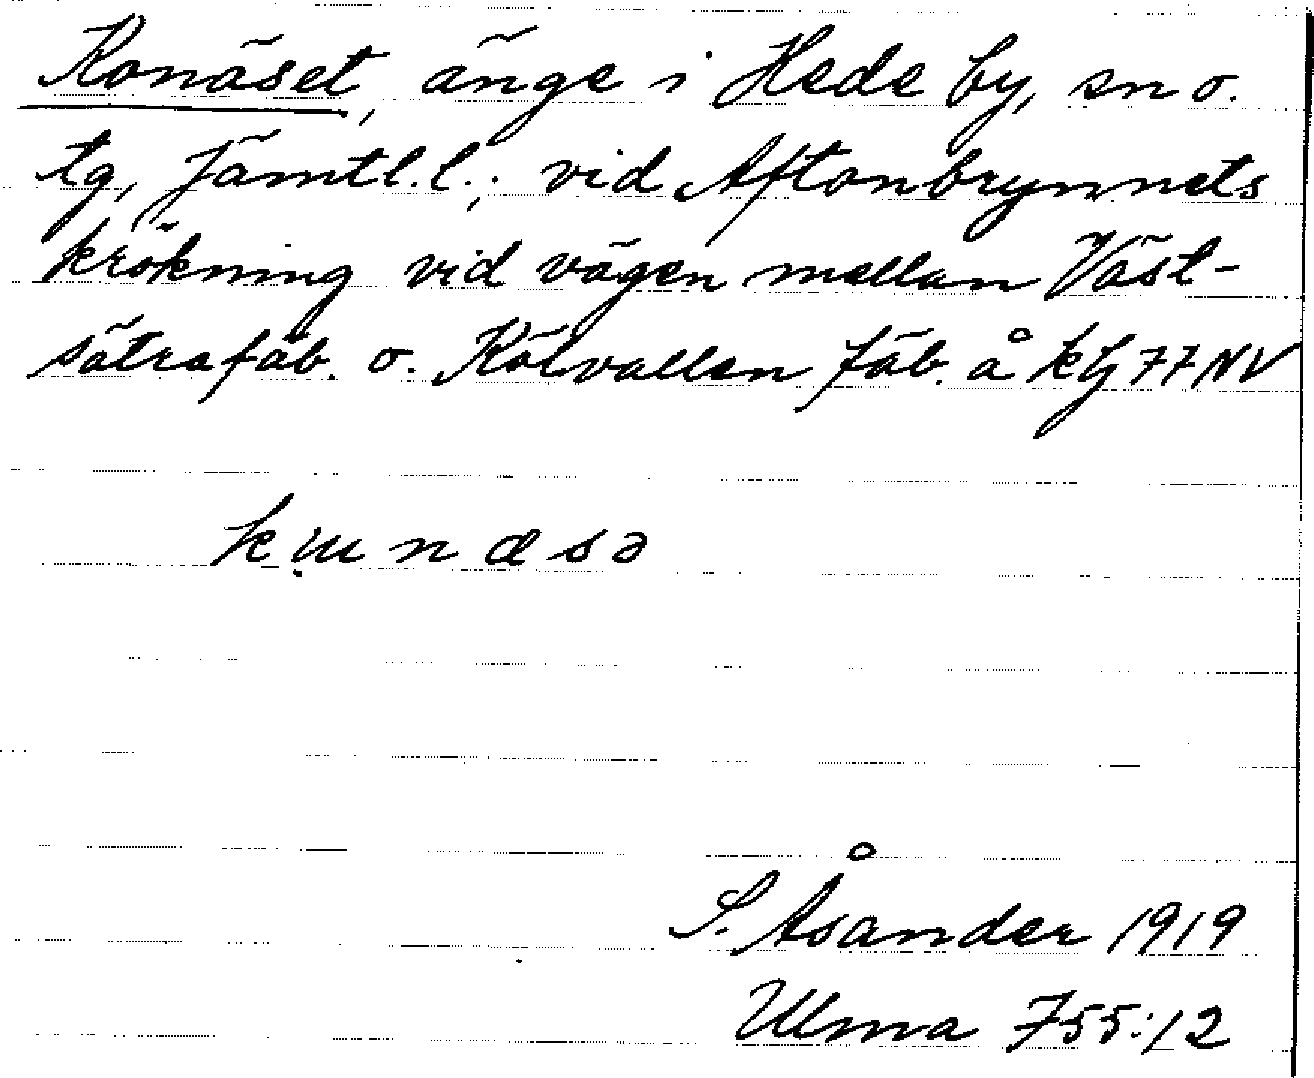 Konäset, änge i Hede by, sn o.
tg, Jämtl.l.; vid Aftonbrynnets
krökning vid vägen mellan Väst-
sätrafäb. o. Kölvallen fäb. å kbl 77 NV
kɯnæsə
S. Åsander 1919
Ulma 755:12